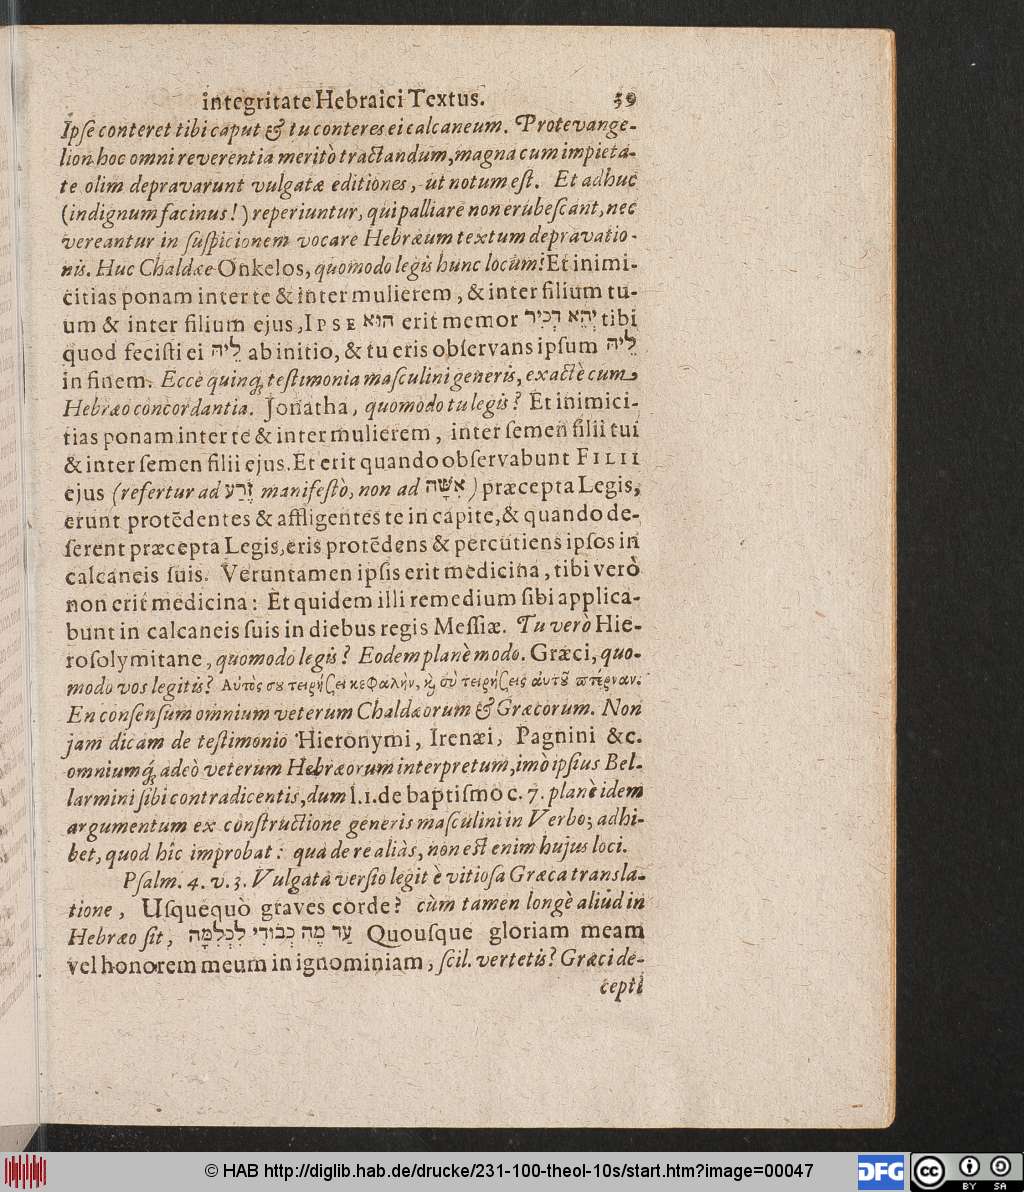 integritate Hebraici Textus. 39
Ipſe conteret tibi caput & tu conteres ei calcaneum. Protevange-
lion hoc omni reverentia meritò tractandum, magna cum impieta-
te olim depravarunt vulgatæ editiones, ut notum eſt. Et adhuc
(indignum facinus!) reperiuntur, qui palliare non erubeſcant, nec
vereantur in ſuſpicionem vocare Hebræum textum depravatio-
nis. Huc Chaldæe Onkelos, quomodo legis hunc locum? Et inimi-
citias ponam inter te & inter mulierem, & inter filium tu-
um & inter filium ejus, IPSE הוּא erit memor יְהֵא דְכִיר tibi
quod feciſti ei לֵיהּ ab initio, & tu eris obſervans ipſum לֵיהּ
in finem. Ecce quinq; teſtimonia maſculini generis, exactè cum
Hebræo concordantia. Jonatha, quomodo tu legis? Et inimici-
tias ponam inter te & inter mulierem, inter ſemen filii tui
& inter ſemen filii ejus. Et erit quando obſervabunt FILII
ejus (refertur ad זֶרַע manifeſtò, non ad אִשָּׁה) præcepta Legis,
erunt protēdentes & affligentes te in capite, & quando de-
ſerent præcepta Legis, eris protēdens & percutiens ipſos in
calcaneis ſuis. Veruntamen ipſis erit medicina, tibi verò
non erit medicina: Et quidem illi remedium ſibi applica-
bunt in calcaneis ſuis in diebus regis Meſſiæ. Tu verò Hie-
roſolymitane, quomodo legis? Eodem planè modo. Græci, quo-
modo vos legitis? Αὐτὸς σου τειρήσει κεφαλὴν, κὶ σὺ τειρήσεις αὐτοῦ πτέρναν.
En conſenſum omnium veterum Chaldæorum & Græcorum. Non
jam dicam de teſtimonio Hieronymi, Irenæi, Pagnini &c.
omniumq; adeò veterum Hebræorum interpretum, imò ipſius Bel-
larmini ſibi contradicentis, dum l.1. de baptiſmo c. 7. planè idem
argumentum ex conſtructione generis maſculini in Verbo; adhi-
bet, quod hîc improbat: qua de re aliàs, non eſt enim hujus loci.
Pſalm. 4. v. 3. Vulgata verſio legit è vitioſa Græca transla-
tione, Uſquequò graves corde? cùm tamen longè aliud in
Hebræo ſit, עַד מֶה כְבוֹדִי לִכְלִמָּה Quouſque gloriam meam
vel honorem meum in ignominiam, ſcil. vertetis? Græci de-
cepti
© HAB http://diglib.hab.de/drucke/231-100-theol-10s/start.htm?image=00047
DFG
cc BY SA